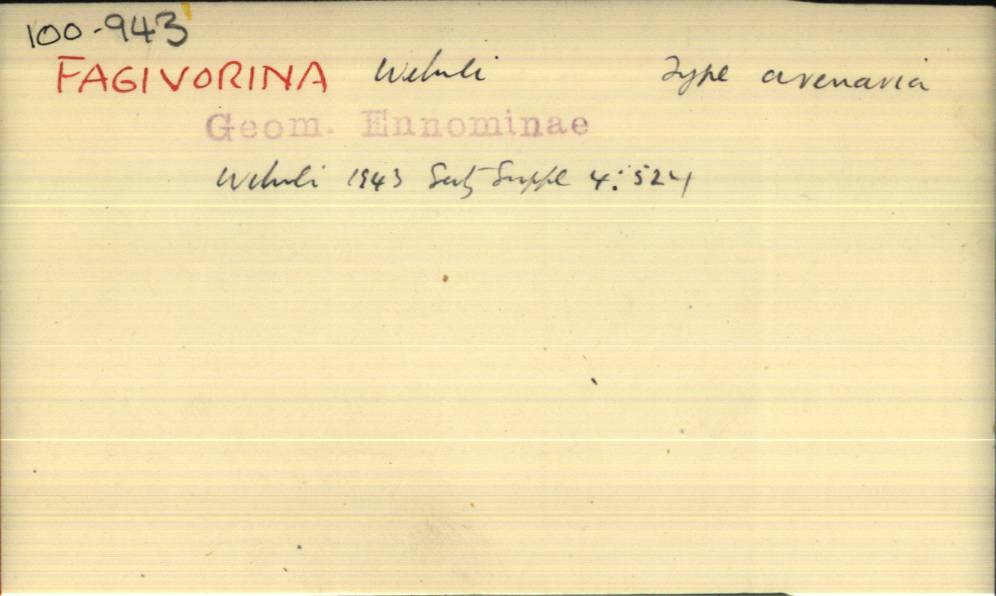 100-943
FAGIVORINA Wehrli Type arenaria
Geom. Ennominae
Wehrli 1943 Seitz Suppl 4: 524